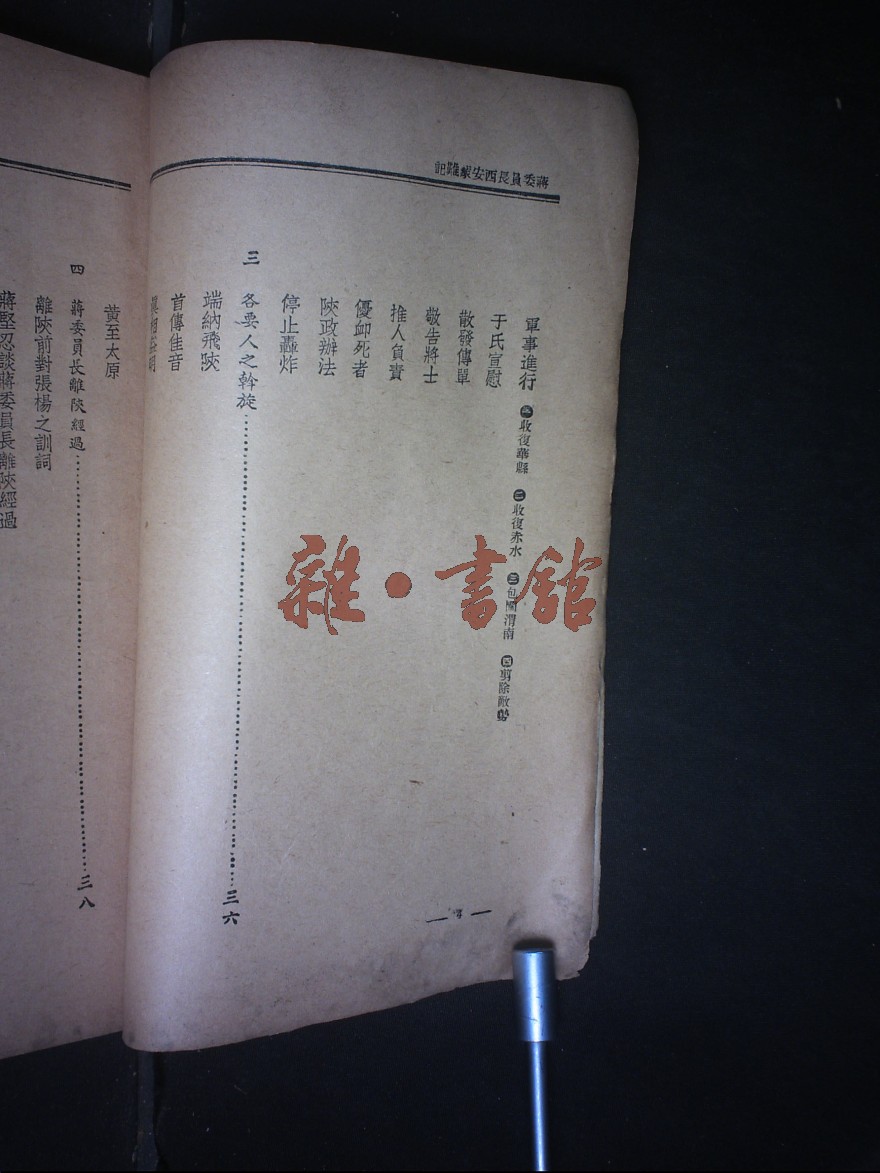 蔣委員長西安蒙難記
軍事進行 ㊀收復華縣 ㊁收復赤水 ㊂包圍渭南 ㊃剪除敵勢
于氏宣慰
散發傳單
敬告將士
推人負責
優卹死者
陝政辦法
停止轟炸
三 各要人之斡旋……三六
端納飛陝
首傳佳音
黃至太原
四 蔣委員長離陝經過……三八
離陝前對張楊之訓詞
蔣堅忍談蔣委員長離陝經過
雜·書館